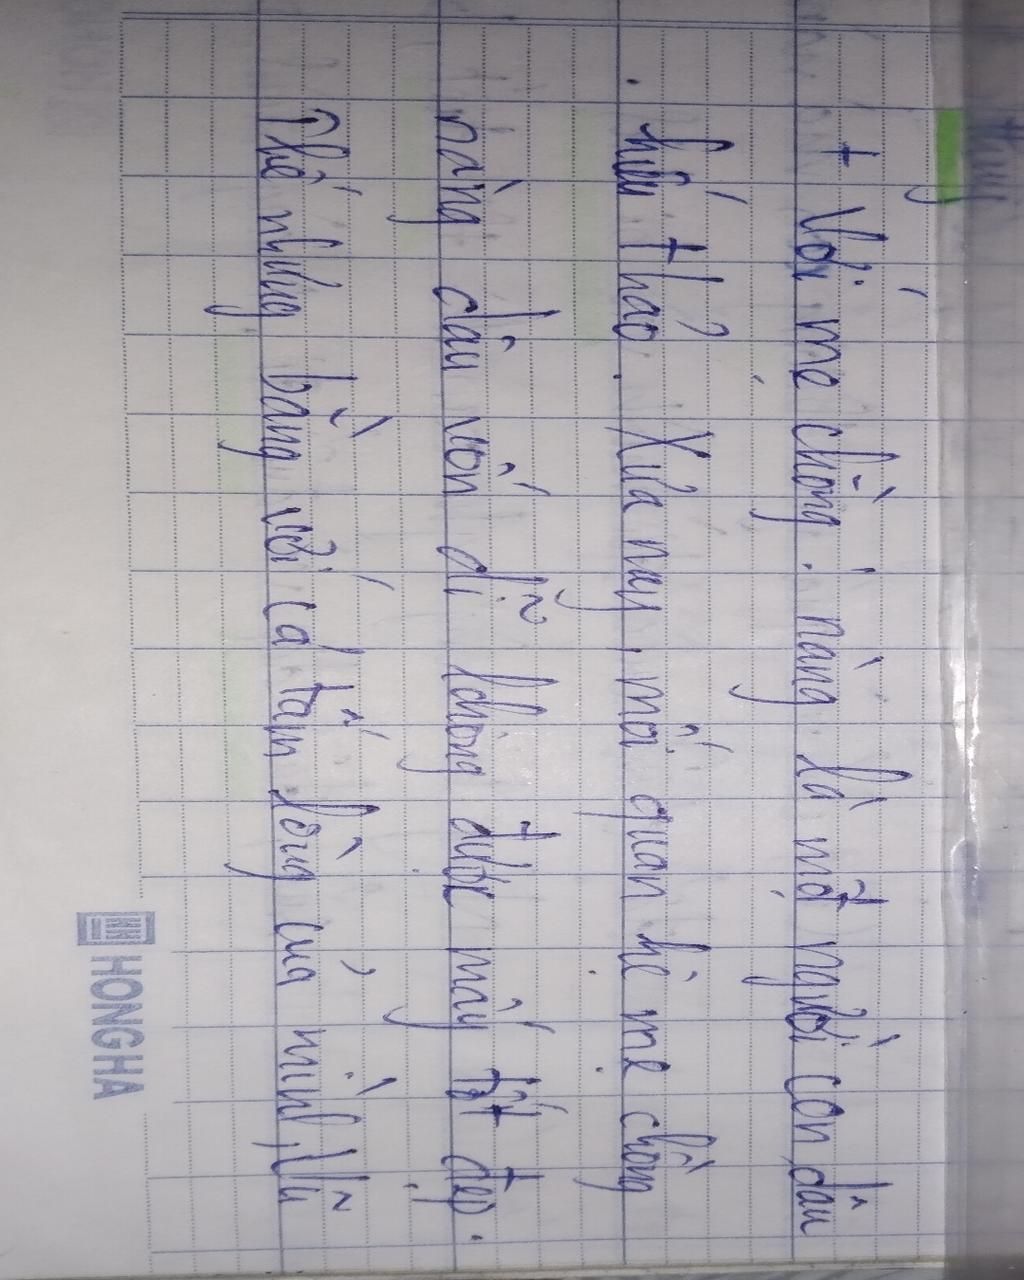 + Với mẹ chồng, nàng là một người con dâu
hiếu thảo. Xưa nay, mối quan hệ mẹ chồng
nàng dâu vốn dĩ không được mấy tốt đẹp.
Thế nhưng bằng với cả tấm lòng của mình, Vũ
HONG HA